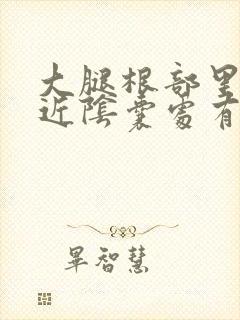 大腿根部里
近陰囊處有
畢智慧